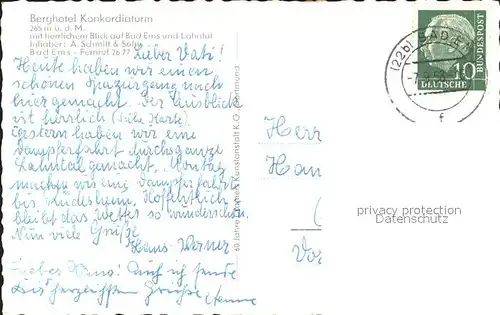 Berghotel Konkordiaturm
265 m ü. d. M.
mit herrlichem Blick auf Bad Ems und Lahntal
Inhaber: A. Schmitt & Sohn
Bad Ems - Fernruf 26 77
Lieber Vati!
Heute haben wir einen
schönen Spaziergang nach
hier gemacht. Der Ausblick
ist herrlich (siehe Karte).
Gestern haben wir eine
Dampferfahrt durchs ganze
Lahntal gemacht. Montag
machen wir eine Dampferfahrt
bis Rüdesheim. Hoffentlich
bleibt das Wetter so wunderschön.
Nun viele Grüße
Hans-Werner
auch ich sende
herzlichsten Grüße,
Kunstanstalt K.G. Dortmund
(22b) BAD EMS
f
10
DEUTSCHE
BUNDESPOST
Herr
Han
privacy protection
Datenschutz